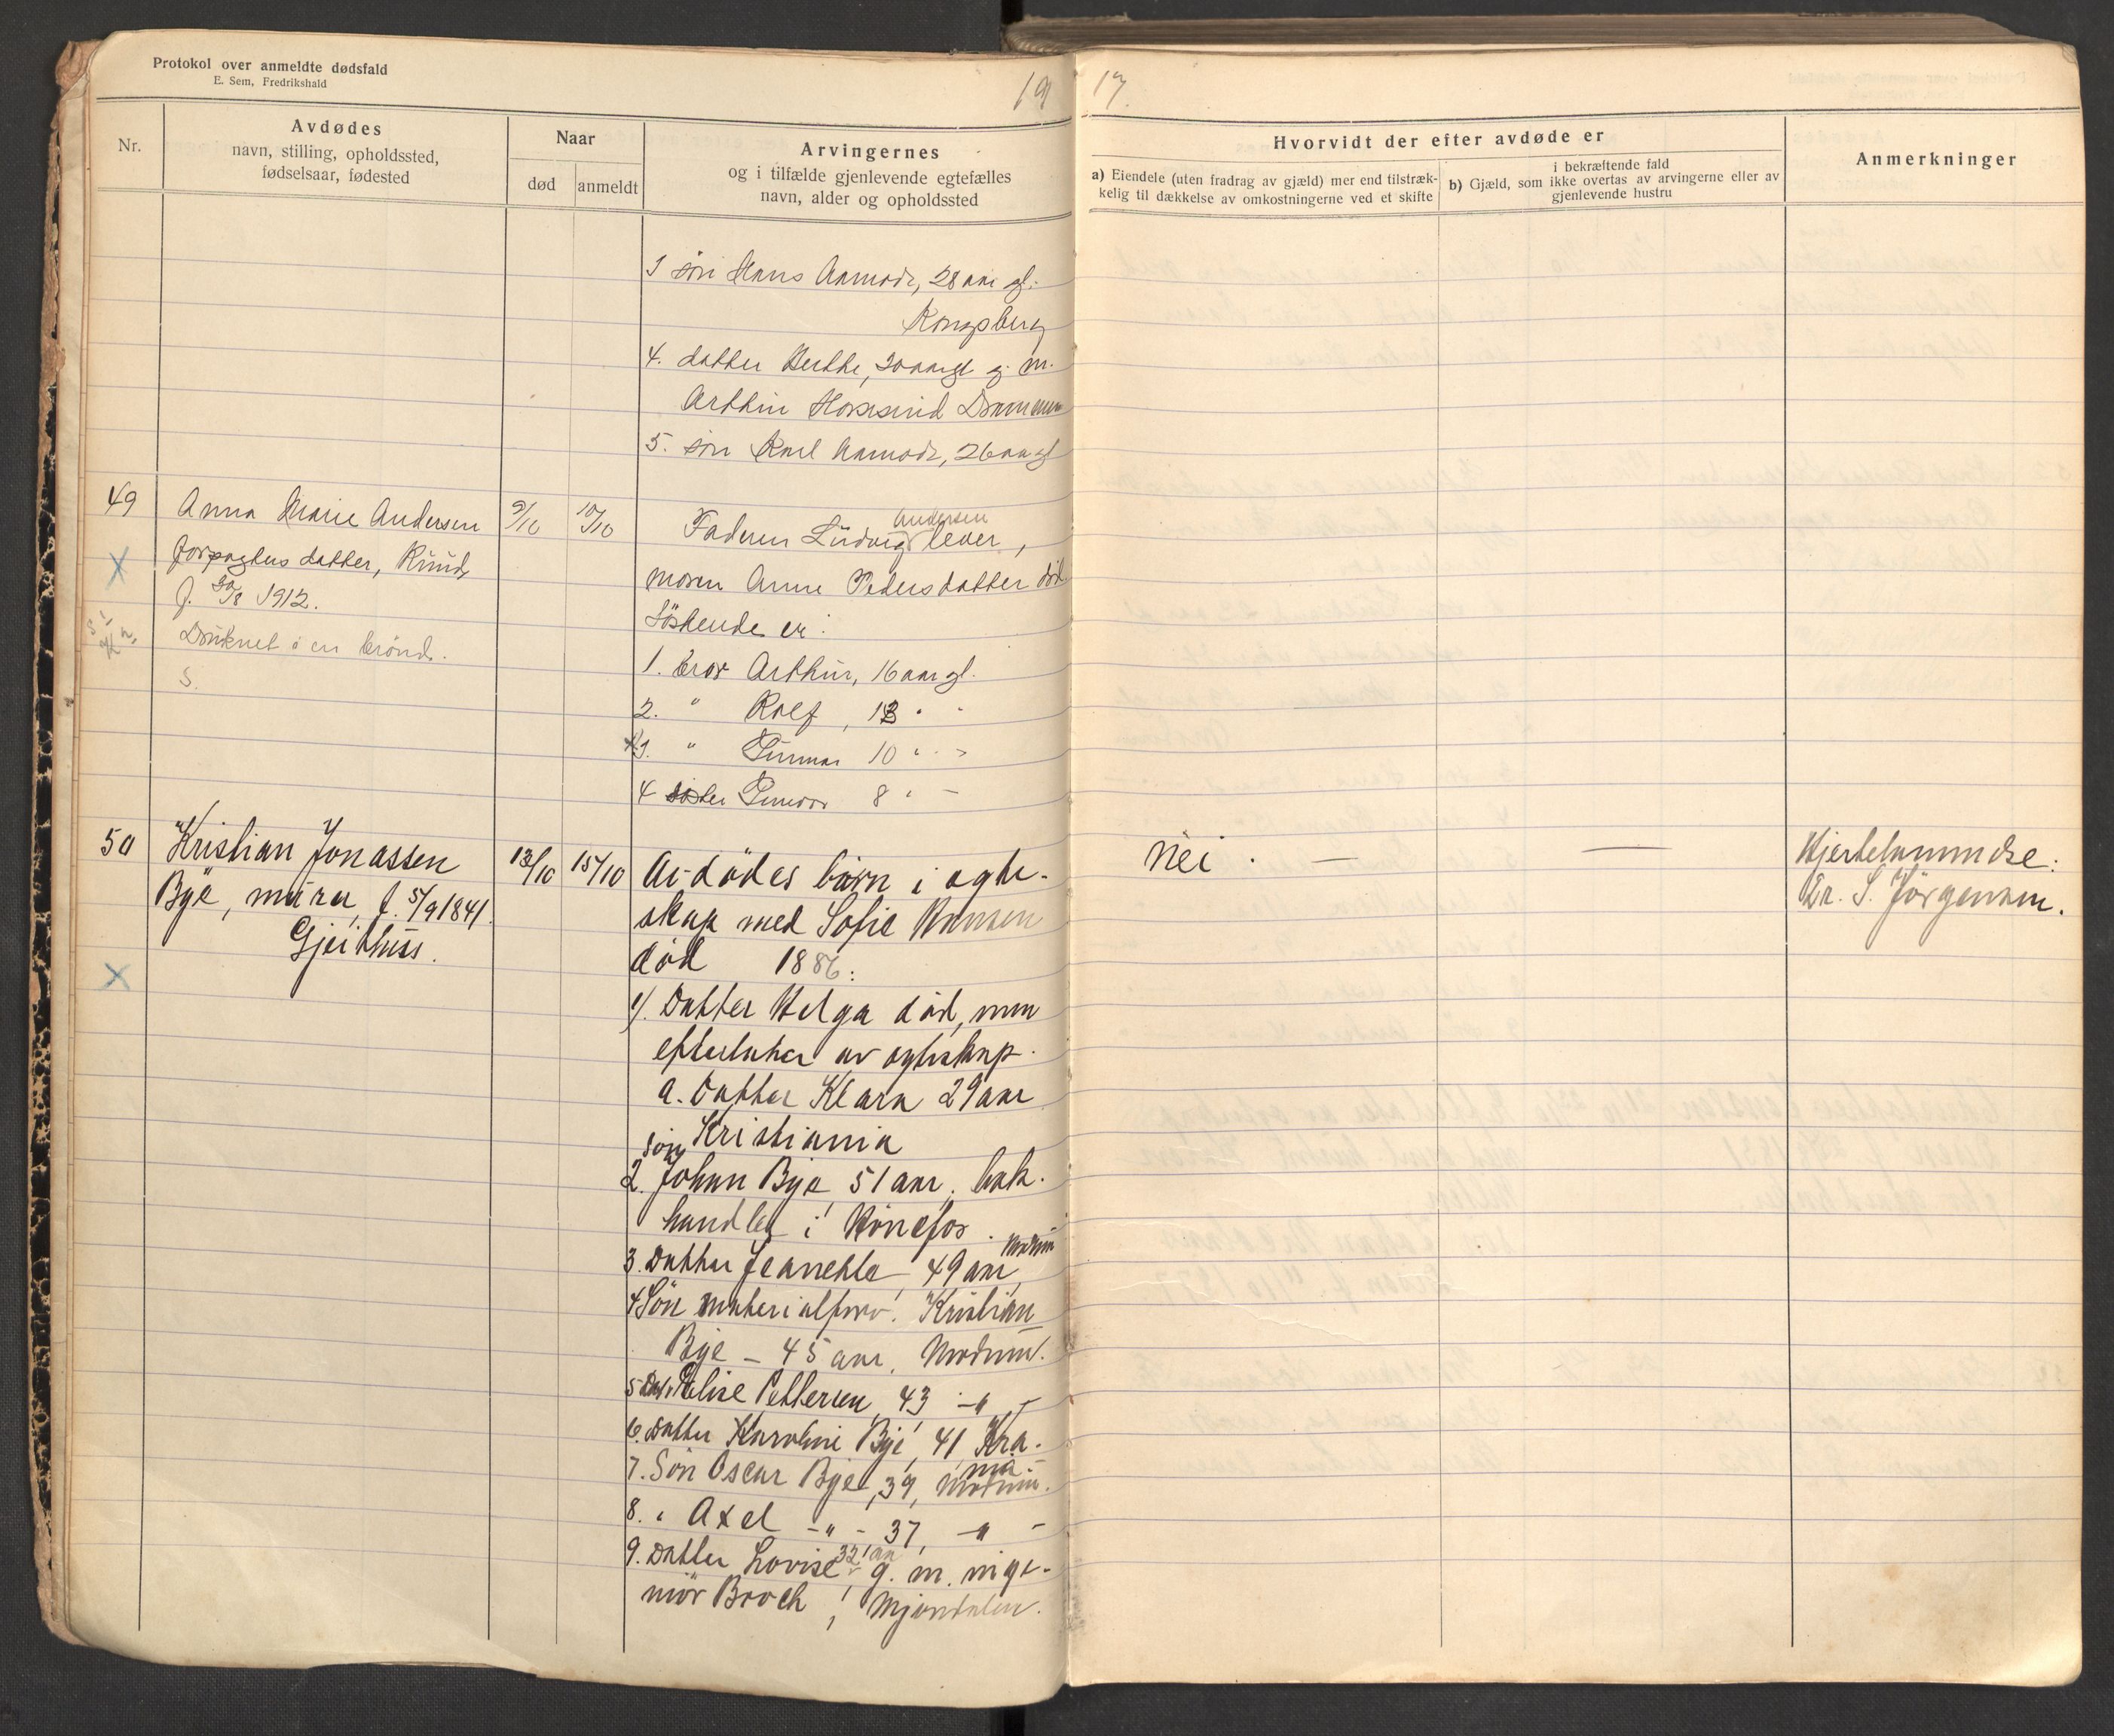 Protokol over anmeldte dødsfald
E. Sem, Fredrikshald
19 17.
Nr.
Avdødes
navn, stilling, opholdssted,
fødselsaar, fødested
Naar
død
anmeldt
Arvingernes
og i tilfælde gjenlevende egtefælles
navn, alder og opholdssted
Hvorvidt der efter avdøde er
a) Eiendele (uten fradrag av gjæld) mer end tilstræk-
kelig til dækkelse av omkostningerne ved et skifte
i bekræftende fald
b) Gjæld, som ikke overtas av arvingerne eller av
gjenlevende hustru
Anmerkninger
3 søn Hans Aamodt, 28 aar gl.
Kongsberg
4. datter Berthe, 30 aargl g. m.
Arthur Drammen
5. søn Karl Aamodt, 26 aa gl
49
Anna Marie Andersen
forpagters datter, Ruud,
f. 30/8 1912.
Druknet i en brönd.
S.
9/10
10/10
Faderen Ludvig Andersen lever,
moren Anne Pedersdatter död
Söskende er:
1. bror Arthur, 16 aar gl.
2. " Rolf, 13 " -
3. " Gunnar 10 " - -
4 søster Gunvor 8 " -
50
Kristian Jonassen
Bye, murer, f. 5/9 1841.
Gjeithus.
13/10
15/10
Avdödes barn i egte-
skap med Sofie Hansen
död 1886:
1). Datter Helga död, men
efterlater av egteskap.
a. Datter Klara 29 aar
Kristiania
2. søn Johan Bye 51 aar, bok.
handler i Hönefos.
3. Datter Jeanette 49 aar, Modum
4 Sön materialforv. Kristian
Bye - 45 aar, Modum.
5 Dat. Elise Pettersen, 43 -"-
6. Datter Karoline Bye, 41 Kra.
nia -
7. Sön Oscar Bye, 39, Modum.
8. " Axel -"- 37, -"-
9. Datter Lovise 32 aar g. m. inge-
niör Broch, Mjöndalen.
Nei. —
—
Hjertelammelse:
Dr. S. Jörgensen.